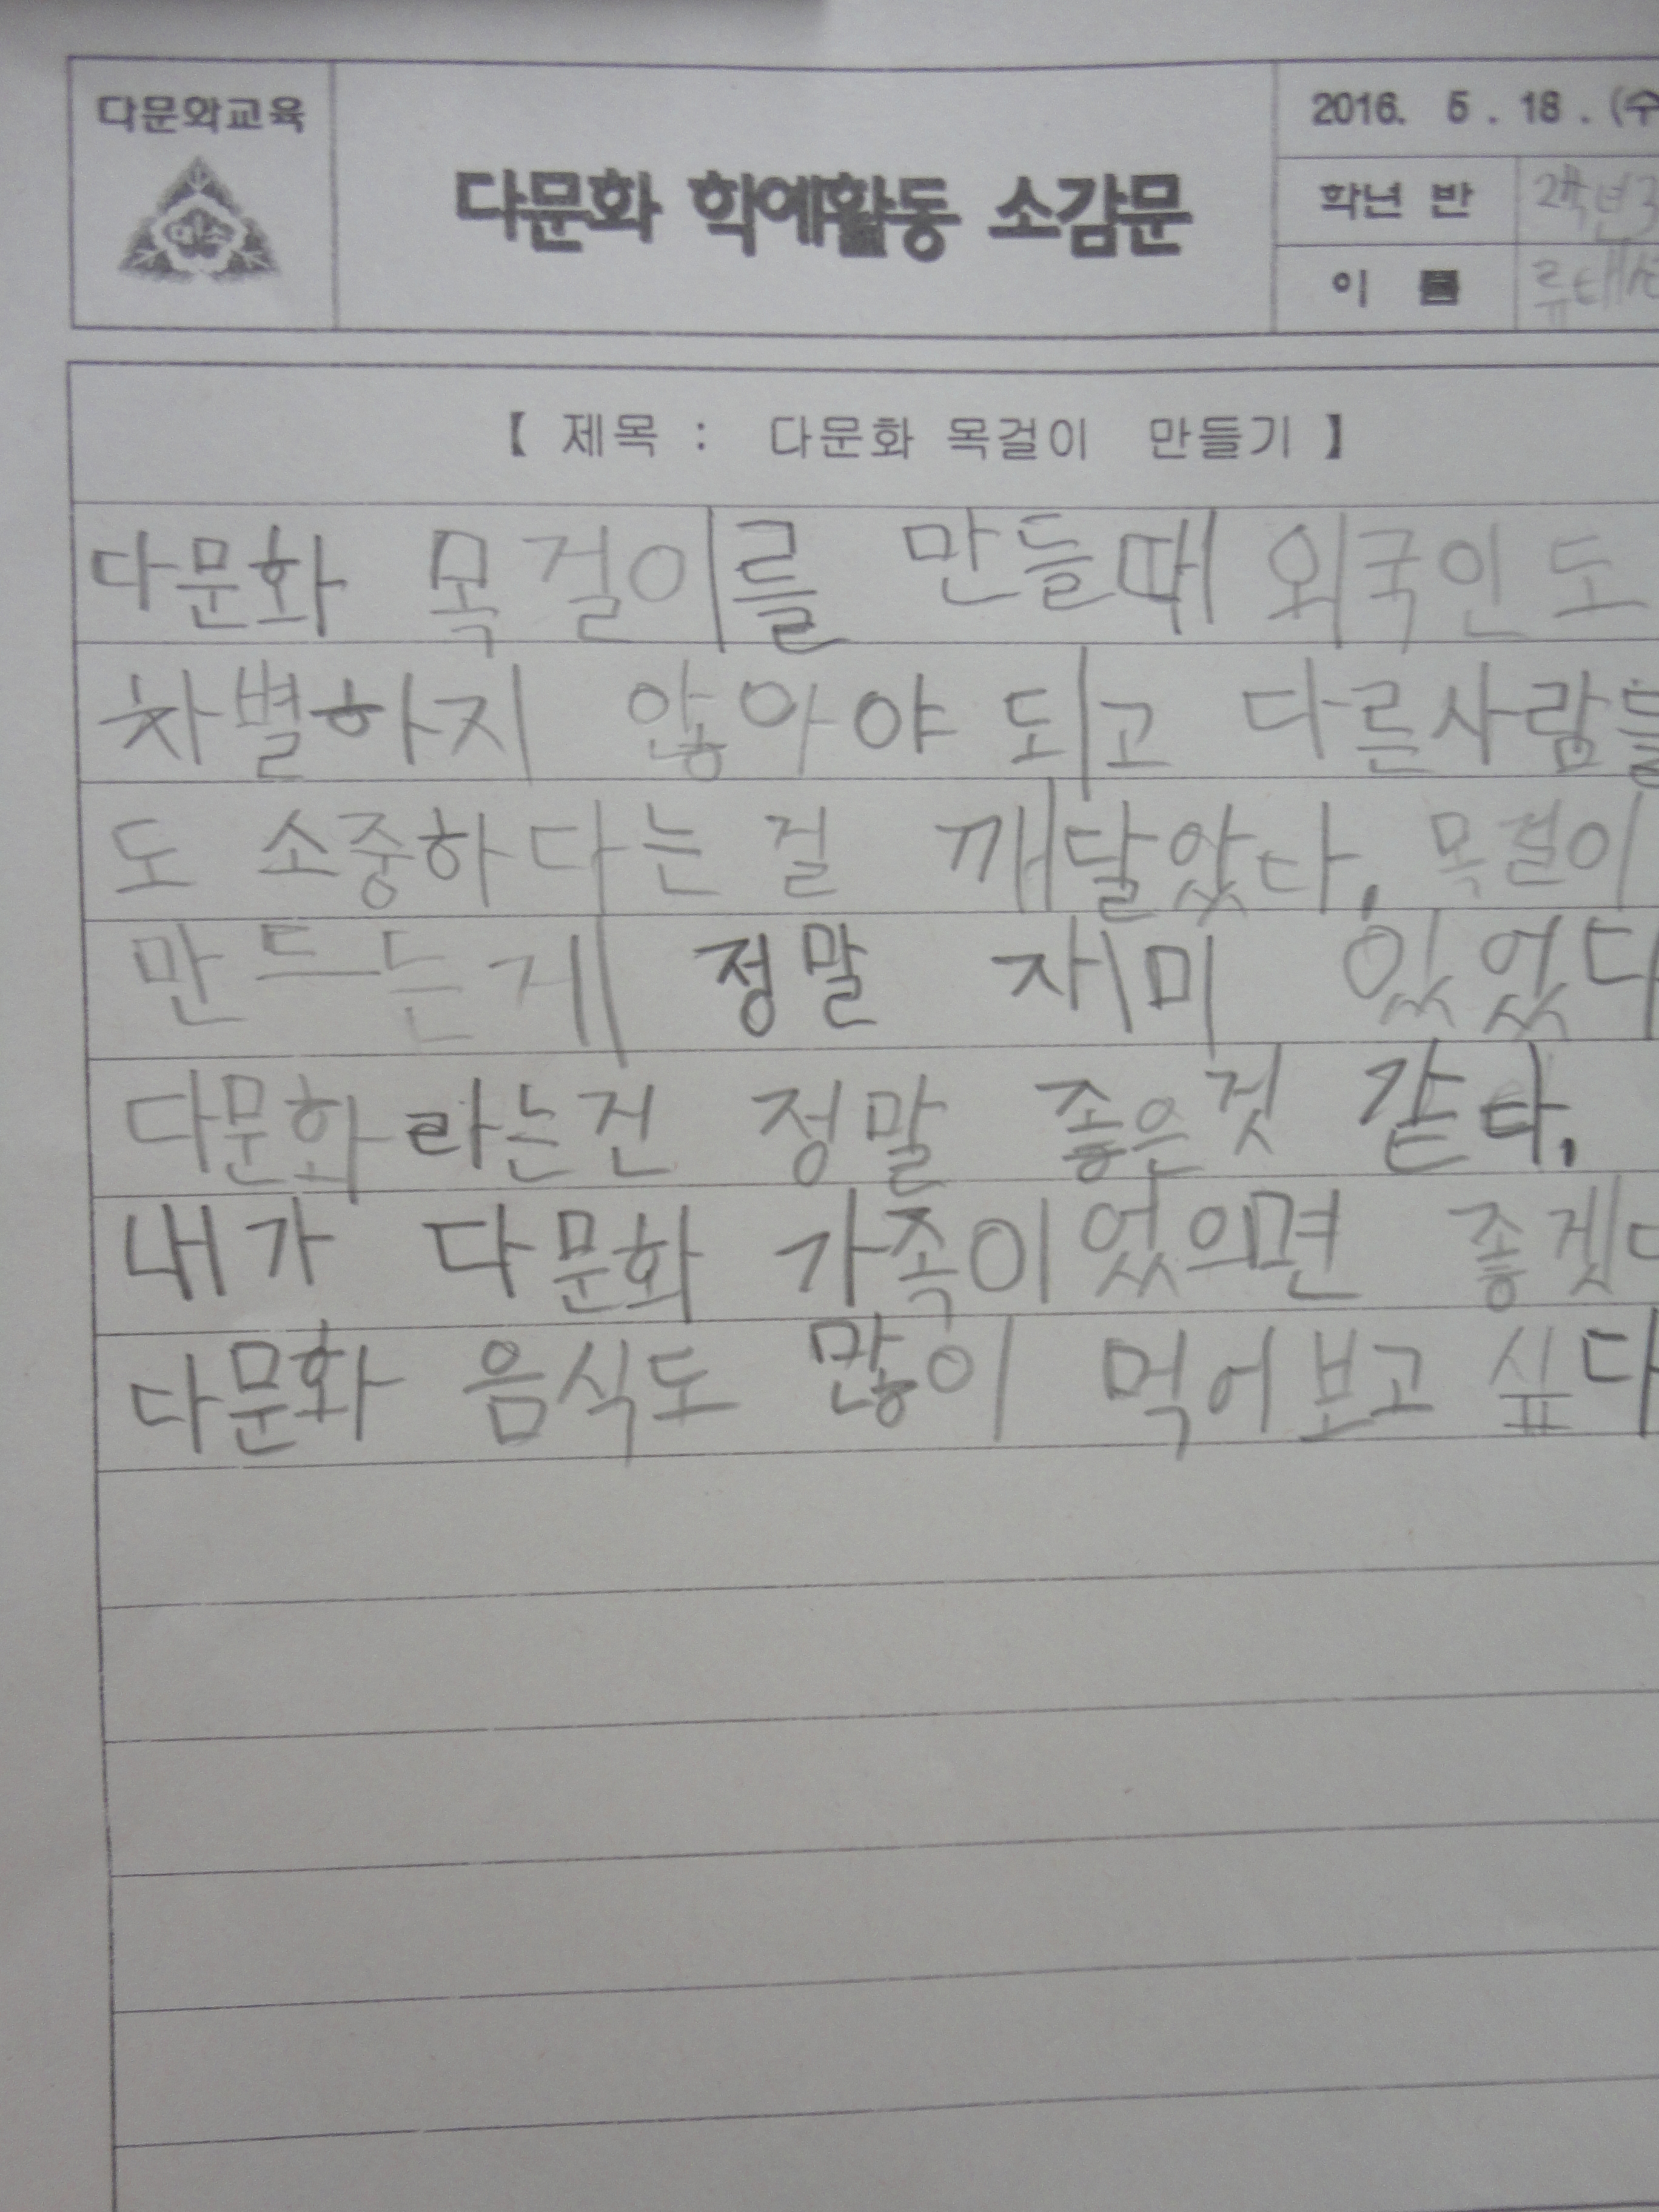 다문화교육
다문화 학예활동 소감문
2016. 5. 18. (수
학년 반 2학년3
이 름
【 제목 : 다문화 목걸이 만들기 】
다문화 목걸이를 만들때 외국인도
차별하지 않아야 되고 다른사람들
도 소중하다는 걸 깨달았다. 목걸이
만드는게 정말 재미 있었다
다문화라는건 정말 좋은것 같다.
내가 다문화 가족이었으면 좋겠다
다문화 음식도 많이 먹어보고 싶다